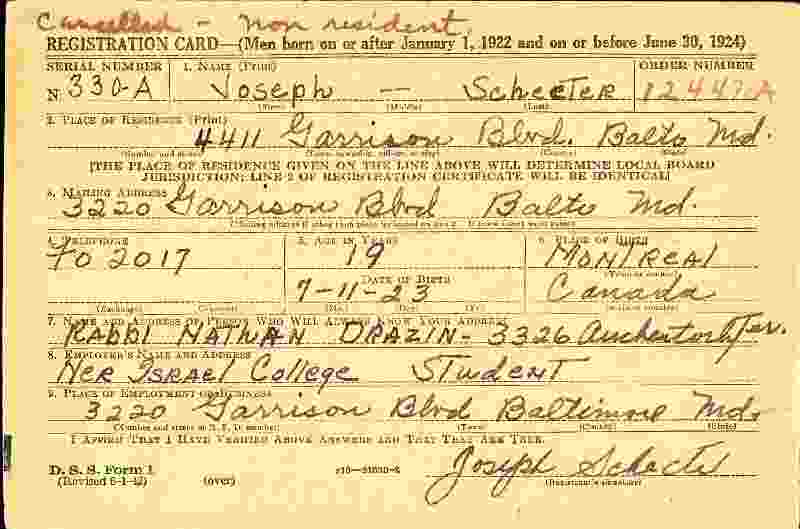 Cancelled - Non resident.
REGISTRATION CARD—(Men born on or after January 1, 1922 and on or before June 30, 1924)
SERIAL NUMBER 1. NAME (Print) ORDER NUMBER
N 330-A Joseph — Schecter 12447A
(First) (Middle) (Last)
2. PLACE OF RESIDENCE (Print)
4411 Garrison Blvd. Balto Md.
[THE PLACE OF RESIDENCE GIVEN ON THE LINE ABOVE WILL DETERMINE LOCAL BOARD
JURISDICTION; LINE 2 OF REGISTRATION CERTIFICATE WILL BE IDENTICAL]
3. MAILING ADDRESS
3220 Garrison Blvd Balto Md.
4. TELEPHONE 5. AGE IN YEARS 6. PLACE OF BIRTH
FO 2017 19 Montreal
DATE OF BIRTH
7-11-23 Canada
(Exchange) (Number) (Mo.) (Day) (Yr.)
7. NAME AND ADDRESS OF PERSON WHO WILL ALWAYS KNOW YOUR ADDRESS
RABBI NATHAN DRAZIN - 3326 Ter.
8. EMPLOYER'S NAME AND ADDRESS
Ner Israel College Student
9. PLACE OF EMPLOYMENT OR BUSINESS
3220 Garrison Blvd Baltimore Md.
(Number and street or R. F. D. number) (Town) (County) (State)
I AFFIRM THAT I HAVE VERIFIED ABOVE ANSWERS AND THAT THEY ARE TRUE.
D. S. S. Form 1
(Revised 6-1-42) (over) Joseph Schecter
(Registrant's signature)